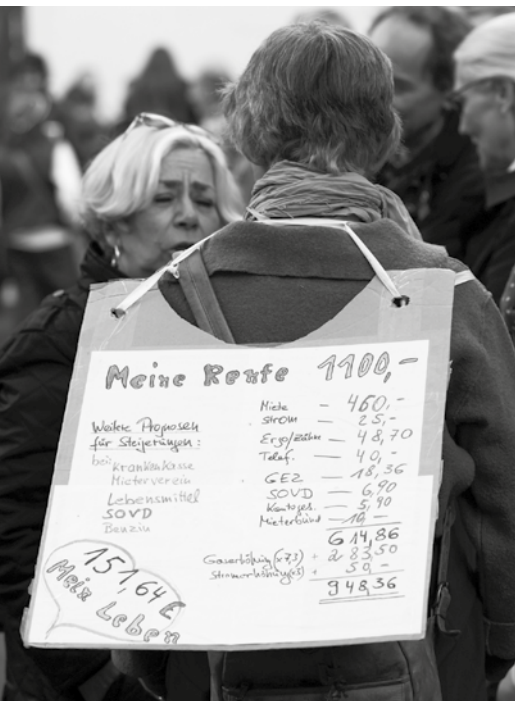 Meine Rente 1100,-
Weitere Prognosen
für Steigerungen:
bei Krankenkasse
Mieterverein
Lebensmittel
SOVD
Benzin
Miete — 460,-
Strom — 25,-
Ergo/Zähn — 48,70
Telef. — 40,-
GEZ — 18,36
SOVD — 6,90
Kontoges. — 5,90
Mieterbund — 10,-
614,86
Gaserhöhung (x7,3) + 283,50
Stromerhöhung (x3) + 50,-
948,36
151,64 €
Mein Leben